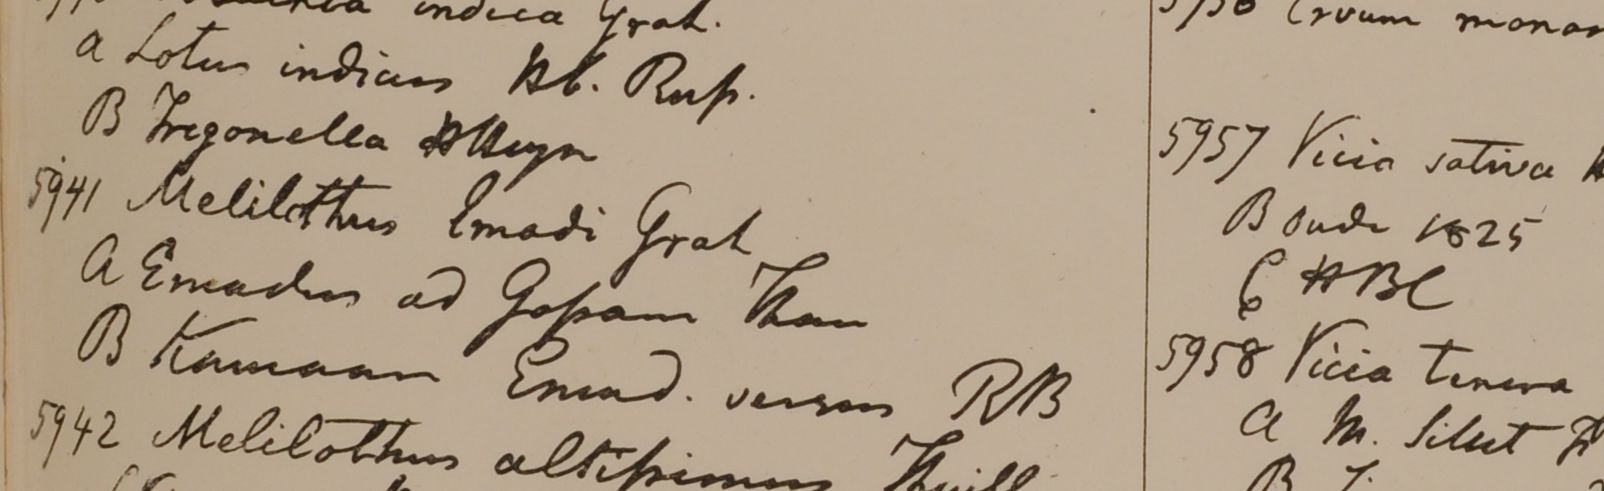 indica Grah.
a Lotus indicus Hb. Rup.
B Trigonella Heyn
5941 Melilothus Emodi Grah
a Emodus ad Gossam Than
B Kamaon Emod. versus RB
5942 Melilothus altissimus Thuill
5956 Ervum
5957 Vicia sativa
B Oude 1825
C HBC
5958 Vicia tenera
a M. Silhet
B